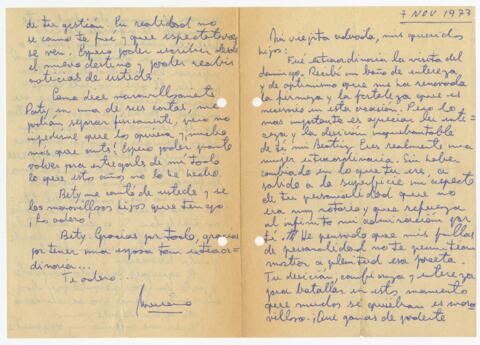 7 NOV 1973
Mi viejita adorada, mis queridos
hijos:
Fué extraordinaria la visita del
domingo. Recibí un baño de entereza
y de optimismo que me ha renovado
la firmeza y la fortaleza que es
en esta ocasión. Pero lo
mas importante es apreciar la
y la decisión inquebrantable
de ti mi Beatriz. Eres realmente una
mujer extraordinaria. Sin haber
cambiado en lo que tu eres, a
salido a la superficie un aspecto
de tu personalidad que no
era muy notorio y que refuerza
al infinito mi admiración por
ti. He pensado que mis fallas
de personalidad no te permitieron
mostrar a plenitud esa faceta.
Tu decisión, confianza y entereza
para batallar en estos momentos
que muchos se es mara
villoso. ¡Que ganas de poderte
de tu gestión. En realidad no
se como te fué y que expectativas
se ven. Espero poder escribir desde
el nuevo destino y poder recibir
noticias de ustedes.
Como dice maravillosamente
Paty en una de sus cartas, me
podrán separar físicamente, pero no
impedirme que los quiera y mucho
más que antes! Espero poder pronto
volver para entregarles de mi todo
lo que estos años no lo he hecho.
Bety me contó de ustedes y se
los maravillosos hijos que tengo
¡Los adoro!
Bety: Gracias por todo, gracias
por tener una esposa tan extraor=
dinaria...
Te adoro.